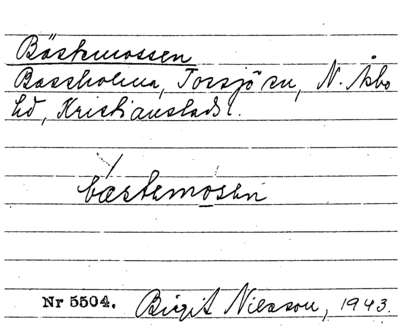 Bästmossen
Bassholma, Torsjö sn, N. Åsbo
hd, Kristianstads l.
bæstemosen
Nr 5504. Birgit Nilsson, 1943.